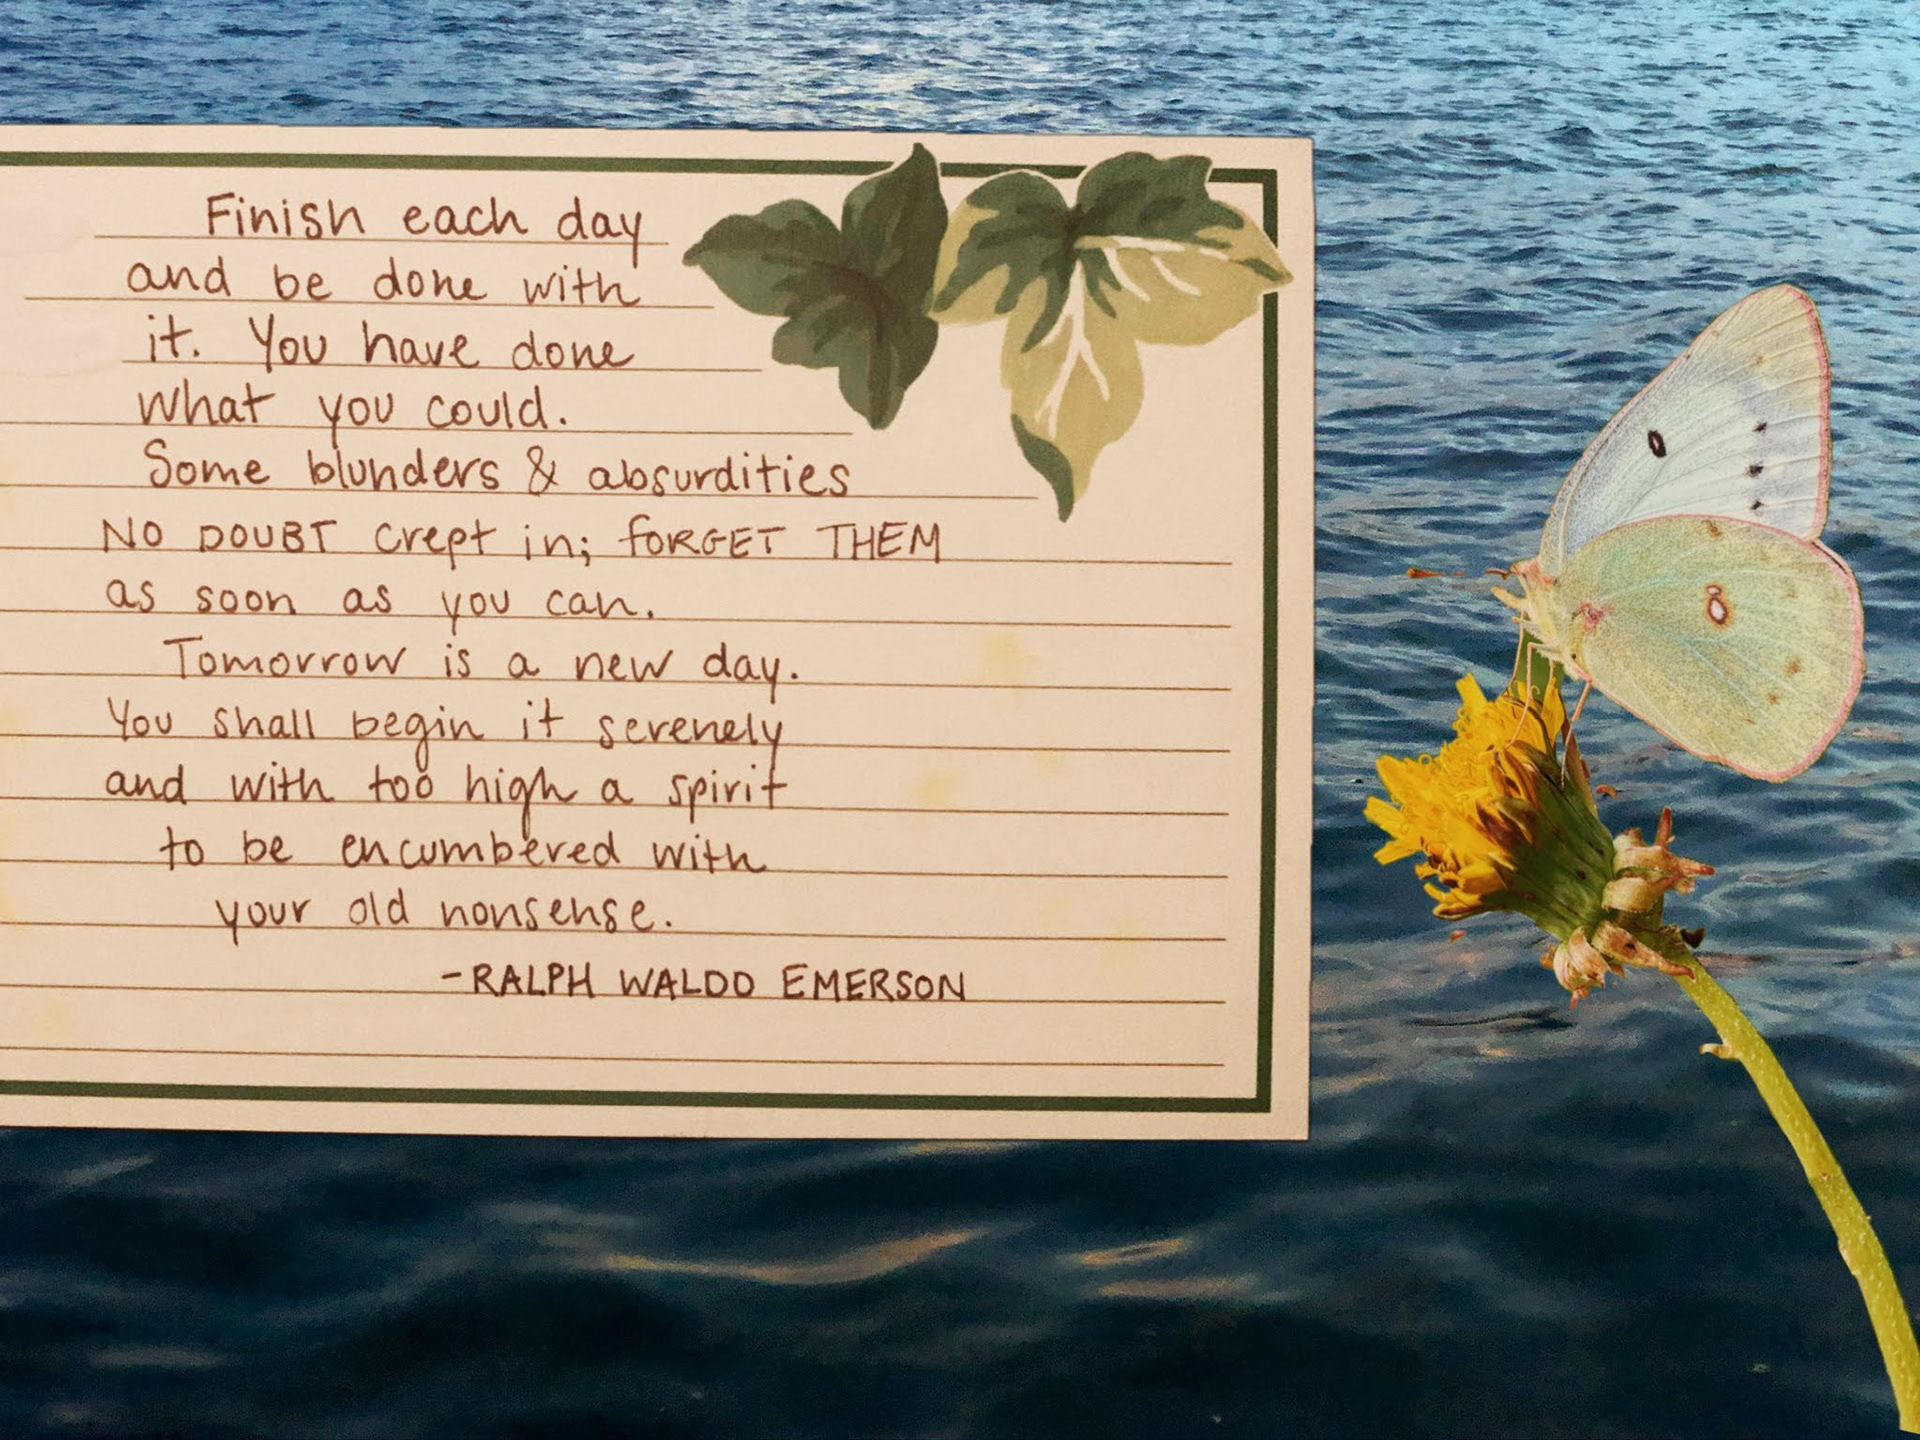 Finish each day
and be done with
it. You have done
what you could.
Some blunders & absurdities
NO DOUBT crept in; FORGET THEM
as soon as you can.
Tomorrow is a new day.
You shall begin it serenely
and with too high a spirit
to be encumbered with
your old nonsense.
-RALPH WALDO EMERSON